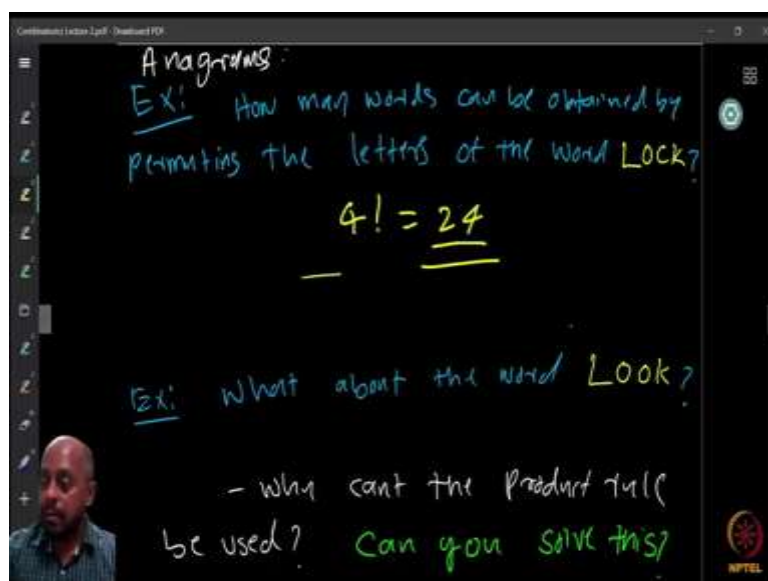 Combinatorics Lecture-2.pdf - Drawboard PDF
Anagrams:
Ex: How many words can be obtained by
permuting the letters of the word LOCK?
4! = 24
Ex: What about the word LOOK?
- Why cant the Product rule
be used? Can you solve this?
NPTEL